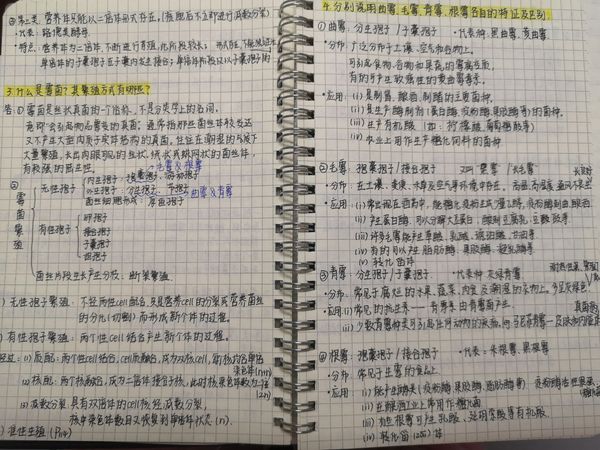 ③ 第三类:营养体只能以二倍体形式存在,
·代表:路德类酵母
·特点:营养体为二倍体,不断进行芽殖,此阶段较长;
单倍体的子囊孢子在子囊内发生接合;单倍体阶段仅以子囊孢子的
3.什么是霉菌?其繁殖方式有哪些?
答:① 霉菌是丝状真菌的一个俗称,不是分类学上的名词。
意即"会引起物品霉变的真菌",通常指那些菌丝体较发达
又不产生大型肉质子实体结构的真菌。往往在潮湿的气候下
大量繁殖,长出肉眼可见的丝状、绒状或蛛网状的菌丝体,
有较强的
②
霉菌繁殖
无性孢子
内生孢子:孢囊孢子、游动孢子
毛霉及根霉
外生孢子:分生孢子、节孢子
曲霉及青霉
菌丝细胞形成:厚垣孢子
有性孢子
卵孢子
接合孢子
子囊孢子
担孢子
菌丝片段生长产生分枝:断裂繁殖
无性孢子繁殖:不经两性cell配合,只是营养cell的分裂或营养菌丝
的分化(切割)而形成新个体的过程。
有性孢子繁殖:两个性cell结合产生新个体的过程。
经过:(1)质配:两个性cell结合,cell质融合,成为双核cell,每个核均含单倍
染色体(n+n)
(2)核配:两个核融合,成为二倍体接合子核,此时核染色体数为二倍
(2n)
(3)减数分裂:具有双倍体的cell核经减数分裂,
核中染色体数目又恢复到单倍体状态(n)。
准性生殖
4.分别说明曲霉、毛霉、青霉、根霉各自的特征及区别。
① 曲霉:分生孢子/子囊孢子 ·代表种:黑曲霉、黄曲霉
·分布:广泛分布于土壤、空气和谷物上,
可引起食物、谷物和果蔬的霉腐变质,
有的可产生致癌性的黄曲霉毒素。
·应用:(i)是制酱、酿酒、制醋的主要菌种。
(ii)是生产酶制剂(蛋白酶、淀粉酶、果胶酶等)的菌种。
(iii)生产有机酸(如:柠檬酸、葡萄糖酸等)
(iv)农业上用作生产糖化饲料的菌种
② 毛霉:孢囊孢子/接合孢子 又叫黑霉/长毛霉
·分布:在土壤、粪便、禾草及空气等环境中存在,
·应用:(i)常出现在酒药中,能糖化淀粉
(ii)产生蛋白酶,可以分解大豆蛋白,酿制豆腐乳、豆豉
(iii)许多毛霉能产生草酸、乳酸、琥珀酸、甘油等
(iv)有的可以产生脂肪酶、果胶酶、凝乳酶等
(v)转化甾体
③ 青霉:分生孢子/子囊孢子 ·代表种:点绿青霉
·分布:常见于腐烂的水果、蔬菜、肉食及潮湿的衣物上,
·应用:(i)常见的抗生素——青霉素由青霉菌产生。
(ii)少数青霉种类可引起
④ 根霉:孢囊孢子/接合孢子 ·代表:米根霉、黑根霉
·分布:常见于生霉的食品上,
(i)能产生酶类(淀粉酶、果胶酶、脂肪酶等)
(ii)在酿酒工业上常用作糖化菌
(iii)有些根霉可产生乳酸、延胡索酸等有机酸。
(iv)转化甾(zāi)体